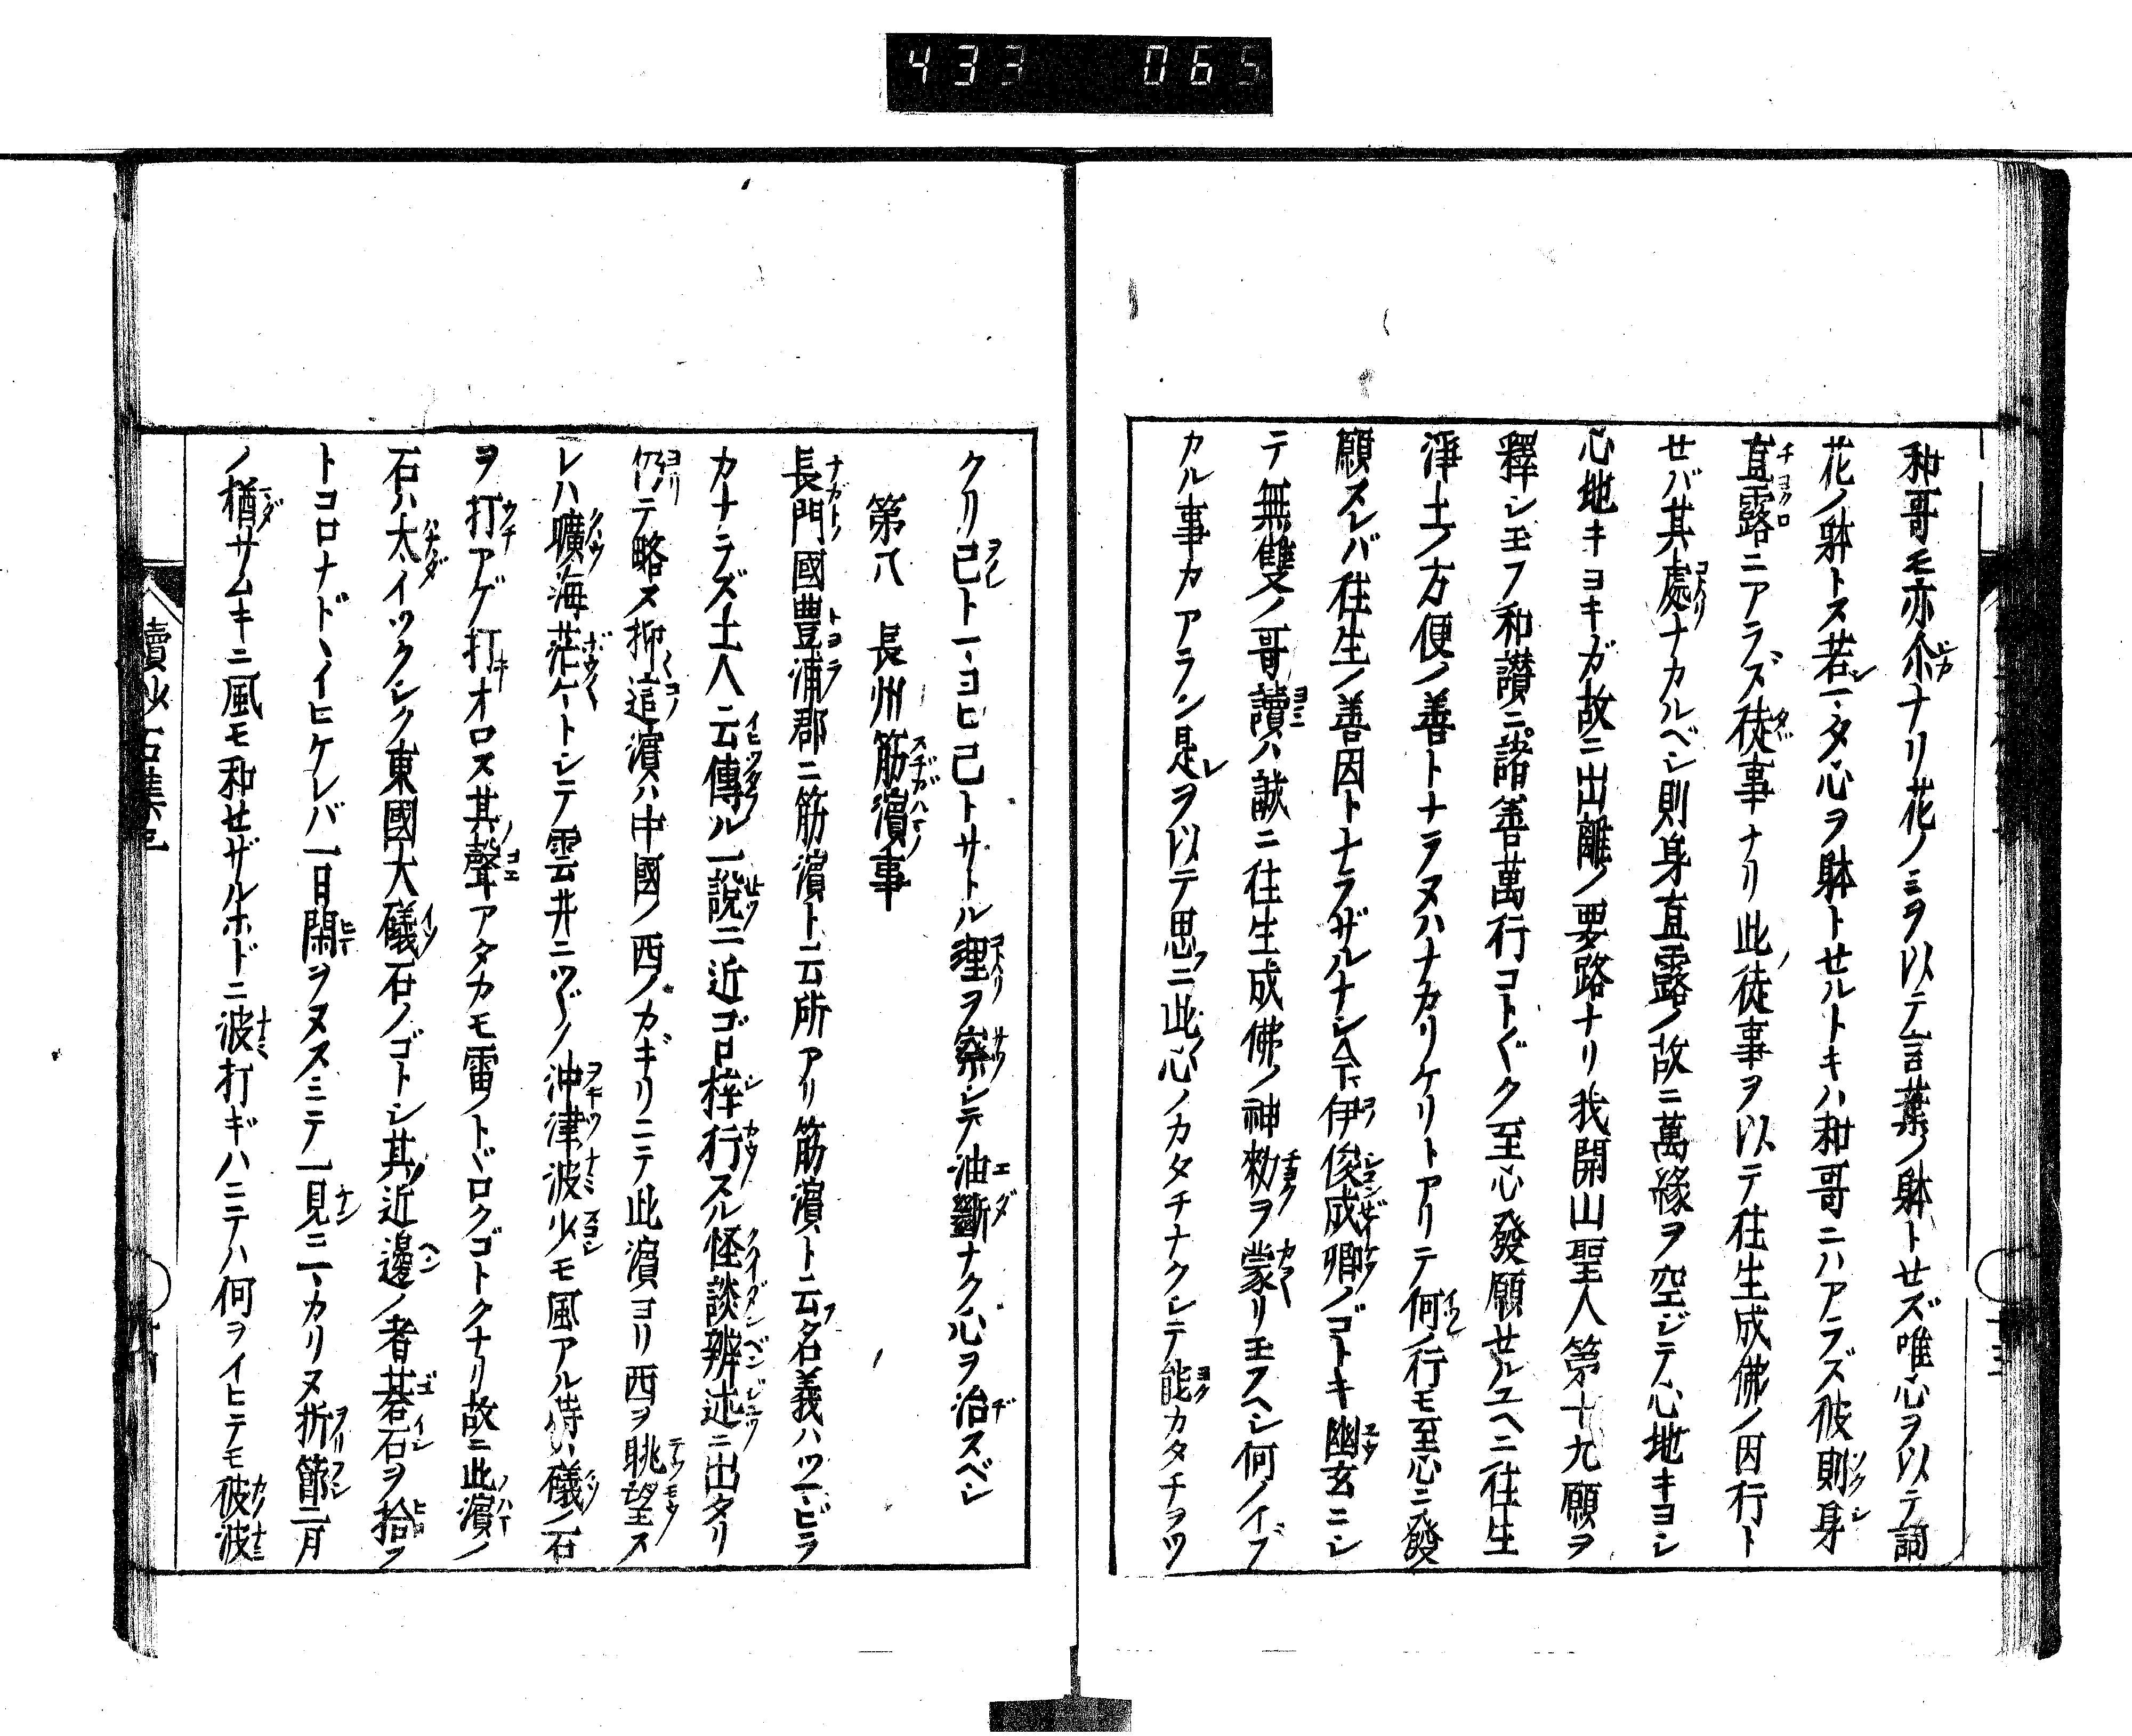 433 065
和哥モ亦尒ナリ花ノミヲ以テ言葉ノ躰トセズ唯心ヲ以テ詞
花ノ躰トス若一タ心ヲ躰トせルトキハ和哥ニハアラズ彼則身
直露ニアラズ徒事ナリ此徒事ヲ以テ往生成佛ノ因行ト
せバ其處ナカルベシ則身直露ノ故ニ萬緣ヲ空ジテ心地キヨシ
心地キヨキガ故ニ出離ノ要路ナリ我開山聖人第十九願ヲ
釋シ玉フ和讃ニ諸善萬行コト〲ク至心發願せルユヘニ往生
淨土ノ方便ノ善トナラヌハナカリケリトアリテ何ノ行モ至心ニ發
願スレバ往生ノ善因トナラザルナシ今伊俊成卿ノゴトキ幽玄ニシ
テ無雙ノ哥讀ハ誠ニ往生成佛ノ神勅ヲ蒙リ玉フヘシ何ノイブ
カル事カアラン是ヲ以テ思ニ此心ノカタチナクシテ能カタチヲツ
クリ己ト一ヨヒ己トサトル理ヲ察シテ油斷ナク心ヲ治スベシ
第八 長州筋濱事
長門國豊浦郡ニ筋濱ト云所アリ筋濱ト云名義ハツマビラ
カナラズ土人云傳ル一說ニ近ゴロ梓行スル怪談辨述ニ出タリ
仍テ略ス抑這濱ハ中國ノ西ノカギリニテ此濱ヨリ西ヲ眺望ス
レハ曠海茫々トシテ雲井ニツヾク沖津波少モ風アル時ハ礒ノ石
ヲ打アゲ打オロス其聲アタカモ雷ノトヾロクゴトクナリ故ニ此濱ノ
石ハ太イツクシク東國大礒石ノゴトシ其近邊ノ者碁石ヲ拾フ
トコロナドヽイヒケレバ一日閑ヲヌスミテ一見ニマカリヌ折節二月
ノ楢サムキニ風モ和せザルホドニ波打ギハニテハ何ヲイヒテモ彼波